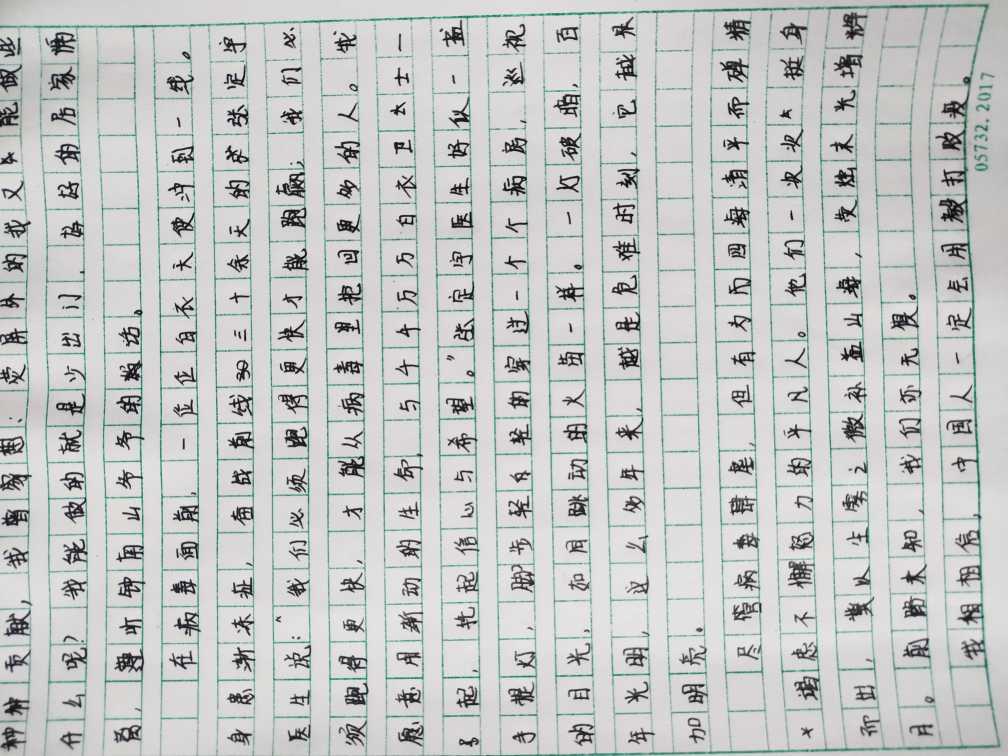 种种贡献,我曾窃想:荧屏外的我又能做些
什么呢?我能做的就是少出门,好好的居家隔
离,谨听钟南山爷爷的访。
在病毒面前,一位位白衣天使冲到一线。
身患渐冻症,奋战前线三十余天的张定宇
医生说:“我们必须跑得更快才能跑赢;我们必
须跑得更快,才能从病毒里抢回更多的人。我
愿意用渐动的生命,与千千万万白衣卫士一
起,托起信心与希望。”张定宇医生好似一盏
手提灯,脚步轻轻的穿过一个个病房,巡视
的目光,如同跳动的火苗一样。一灯破暗,百
年光明,这么多年来,越是危难时刻,它越来
加明亮。
尽管病毒肆虐,但有为而四海清平而殚精
竭虑不懈努力的平凡人。他们一次次挺身
而出,冀以尘雾之微补益山海,荧烛末光增辉
月。前路未知,我们亦无畏。
我相相信,中国人一定会用打败。
05732.2017